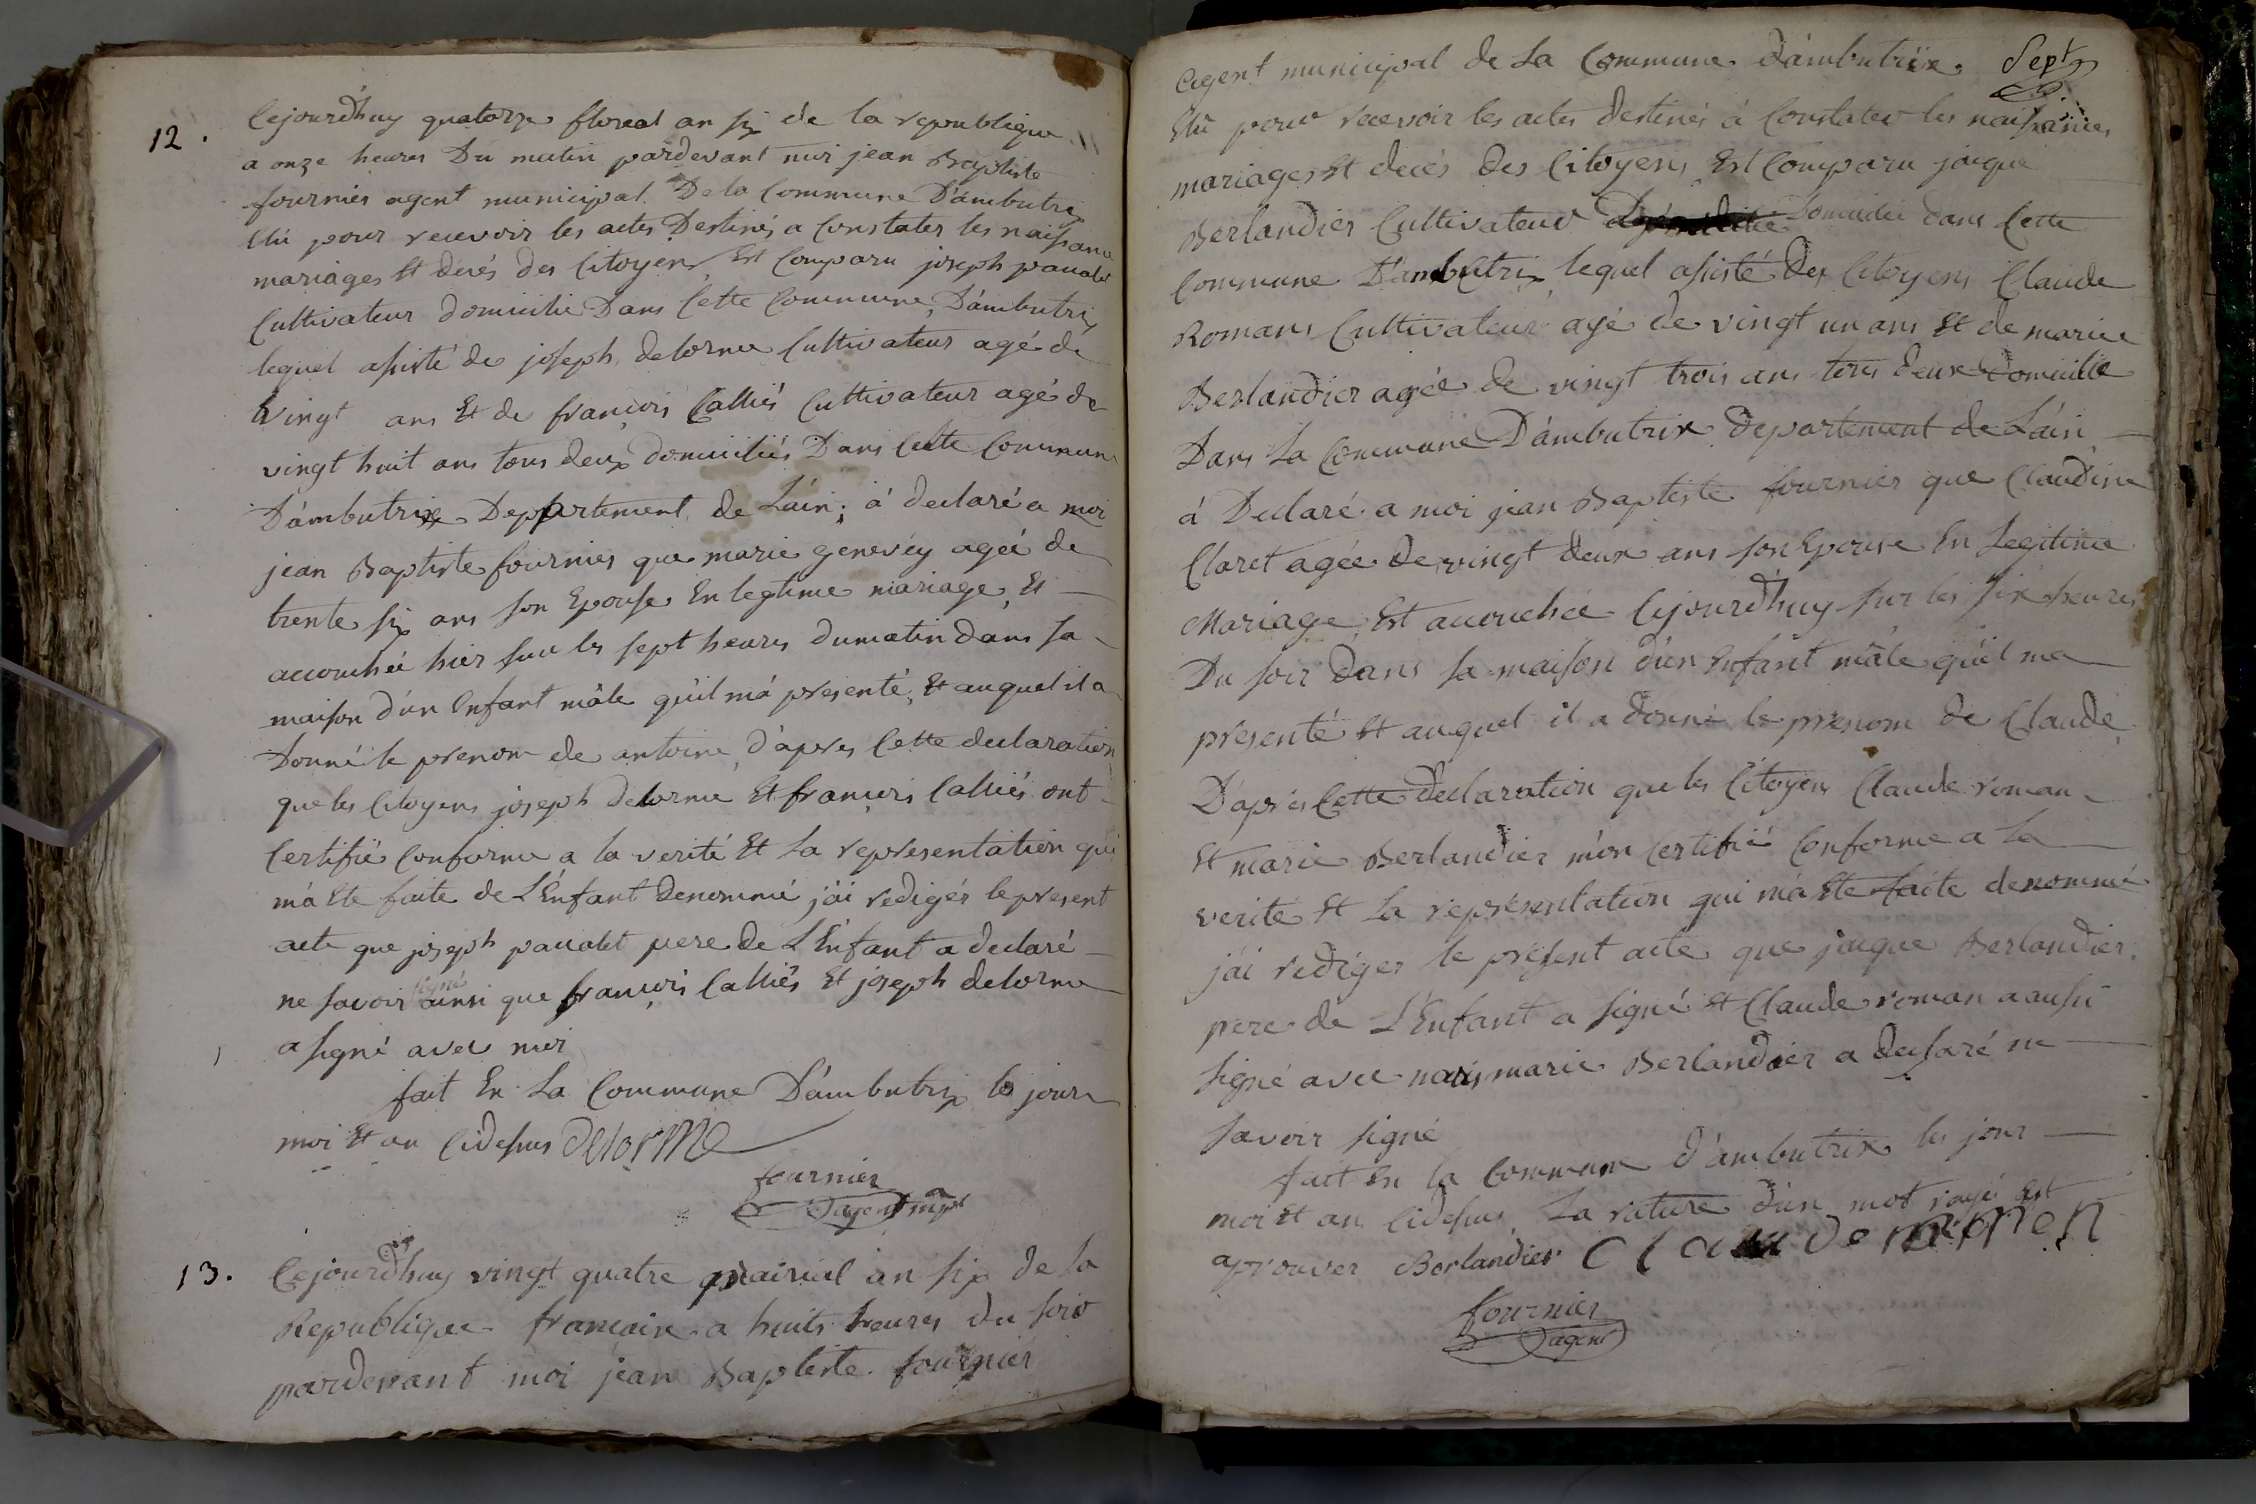 12. Cejourd'huy quatorze floreal an six de la republique
a onze heures Du matin pardevant moi jean Baptiste
fournier agent municipal De la Commune D'ambutrix
Elu pour recevoir les actes Destinés a Constater les naissance
mariages Et decés des Citoyens Est Comparu joseph
Cultivateur domicilié Dans Cette Commune D'ambutrix
lequel assisté de joseph delorme Cultivateur agé de
vingt ans Et de françois Calliés Cultivateur agé de
vingt huit ans tous deux domiciliés Dans Cette Commune
D'ambutrix Departement de L'ain, á declaré a moi
jean Baptiste fournier que marie genevéy ageé de
trente six ans son Epouse En legtime mariage, Et
accouchée hier sur les sept heures du matin dans sa
maison d'un Enfant mâle qu'il m'á presenté, Et auquel il a
Donné le prenom de antoine, d'apres Cette declaration
que les Citoyens joseph Delorme Et françois Calliés ont
Certifié Conforme a la verité Et La representation qui
m'á Ete faite de L'Enfant Denommé j'ái rediger le present
acte que joseph pere de L'Enfant a declaré
ne savoir signé ainsi que françois Calliés Et joseph delorme
a signé avec moi
fait En La Commune D'ambutrix les jour
moi Et an Cidessus delorme
fournier
agent mpal
13. Cejourd'huy vingt quatre prairial an six de la
Republique francaise a huits heures du soir
pardevant moi jean Baptiste fournier
agent municipal de La Commune d'ambutrix Sept
Elû pour recevoir les actes Destinés á Constater les naissances
mariages Et decés des Citoyens Est Comparu jaque
Berlandier Cultivateur Domicilié dans Cette
Commune D'ambutrix lequel assisté des Citoyens Claude
Romans Cultivateur agé de vingt un ans Et de marie
Berlandier agée de vingt trois ans tous deux domicilie
Dans La Commune D'ambutrix departement de L'ain
á Declaré a moi jean Baptiste fournier que Claudine
Claret agée de vingt deux ans son Epouse En Legitime
Mariage, Est accouchée Cejourd'huy sur les six heures
Du soir dans sa maison d'un Enfant mâle qu'il ma
presenté Et auquel il a donné le prenom de Claude
D'aprés Cette declaration que les Citoyens Claude roman
Et marie Berlandier m'on Certifié Conforme a la
verité Et La representation qui m'á Ete faite denommé
j'ái rediger le present acte que jaque Berlandier
pere de L'Enfant a signé Et Claude roman a aussi
signé avec nous marie Berlandier a declaré ne
savoir signé
fait En la Commune d'ambutrix les jour
moi Et an Cidessus La rature d'un mot rayé Est
aprouver Berlandier Claude
fournier
agent